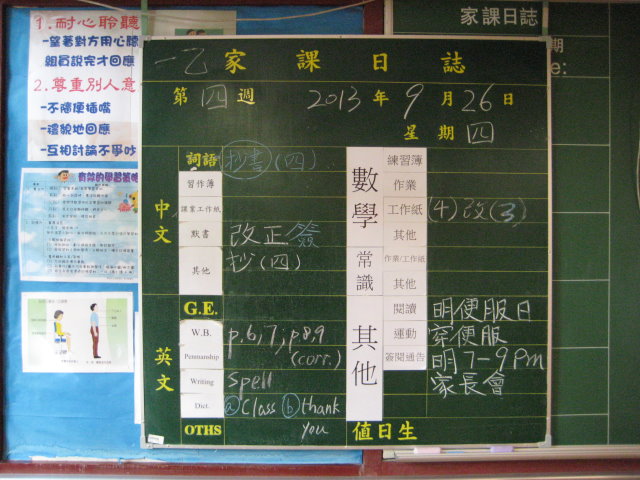 1.耐心聆聽
-望著對方用心聽
組員說完才回應
2.尊重別人意
-不隨便插嘴
-禮貌地回應
-互相討論不爭吵
有效的學習策略
家課日誌
期
e:
一乙家課日誌
第四週 2013年9月26日
星期四
中文
詞語 抄書(四)
習作簿
課業工作紙
默書 改正簽
其他 抄(四)
英文
G.E.
W.B. p.6,7; p8,9
Penmanship (corr.)
Writing spell
Dict. ⓐClass ⓑthank
you
OTHS
數學
練習簿
作業
工作紙 (4)改(3)
其他
常識
作業/工作紙
其他
其他
閱讀 明便服日
運動 穿便服
簽閱通告 明7-9pm
家長會
值日生